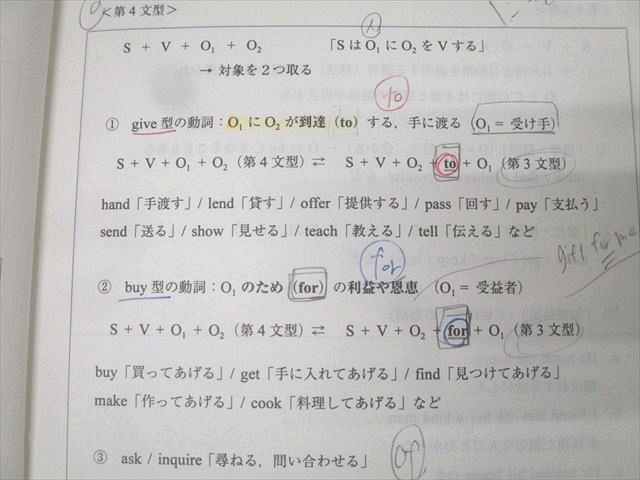 <第4文型>
人
S + V + O₁ + O₂ 「SはO₁にO₂をVする」
→ 対象を2つ取る
to
① give型の動詞：O₁にO₂が到達（to）する，手に渡る（O₁＝受け手）
S + V + O₁ + O₂（第4文型）⇄ S + V + O₂ + to + O₁（第3文型）
hand「手渡す」/ lend「貸す」/ offer「提供する」/ pass「回す」/ pay「支払う」
send「送る」/ show「見せる」/ teach「教える」/ tell「伝える」など
for
gift for me
② buy型の動詞：O₁のため（for）の利益や恩恵（O₁＝受益者）
S + V + O₁ + O₂（第4文型）⇄ S + V + O₂ + for + O₁（第3文型）
buy「買ってあげる」/ get「手に入れてあげる」/ find「見つけてあげる」
make「作ってあげる」/ cook「料理してあげる」など
of
③ ask / inquire「尋ねる，問い合わせる」